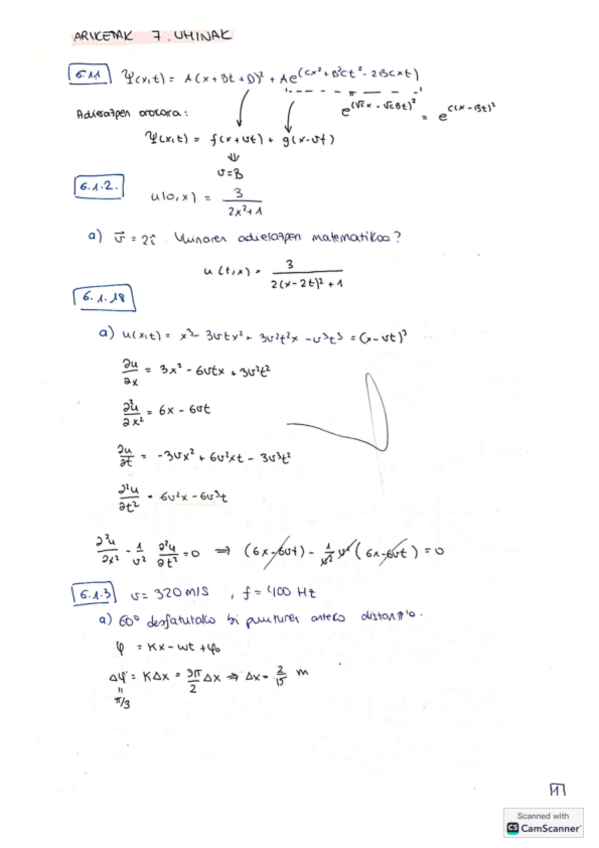 ARIKETAK 7. UHINAK
6.1.1 Ψ(x,t) = A(x+Bt+D)² + Ae^(Cx²+B²Ct²-2BCxt)
e^(√Cx - √CBt)² = e^C(x-Bt)²
Adierazpen orokorra:
Ψ(x,t) = f(x+vt) + g(x-vt)
⇓
v=B
6.1.2. u(0,x) = 3/(2x²+1)
a) v⃗ = 2î. Uhinaren adierazpen matematikoa?
u(t,x) = 3/(2(x-2t)²+1)
6.1.18
a) u(x,t) = x³-3vtx²+3v²t²x-v³t³ = (x-vt)³
∂u/∂x = 3x²-6vtx+3v²t²
∂²u/∂x² = 6x-6vt
∂u/∂t = -3vx²+6v²xt-3v³t²
∂²u/∂t² = 6v²x-6v³t
∂²u/∂x² - 1/v² ∂²u/∂t² = 0 ⇒ (6x-6vt) - 1/v² v²(6x-6vt) = 0
6.1.3 v = 320 m/s, f = 400 Hz
a) 60° desfasatutako bi punturen arteko distantzia.
φ = kx-wt+φ₀
Δφ = KΔx = 5π/2 Δx ⇒ Δx = 2/15 m
=
π/3
1
Scanned with
CS CamScanner